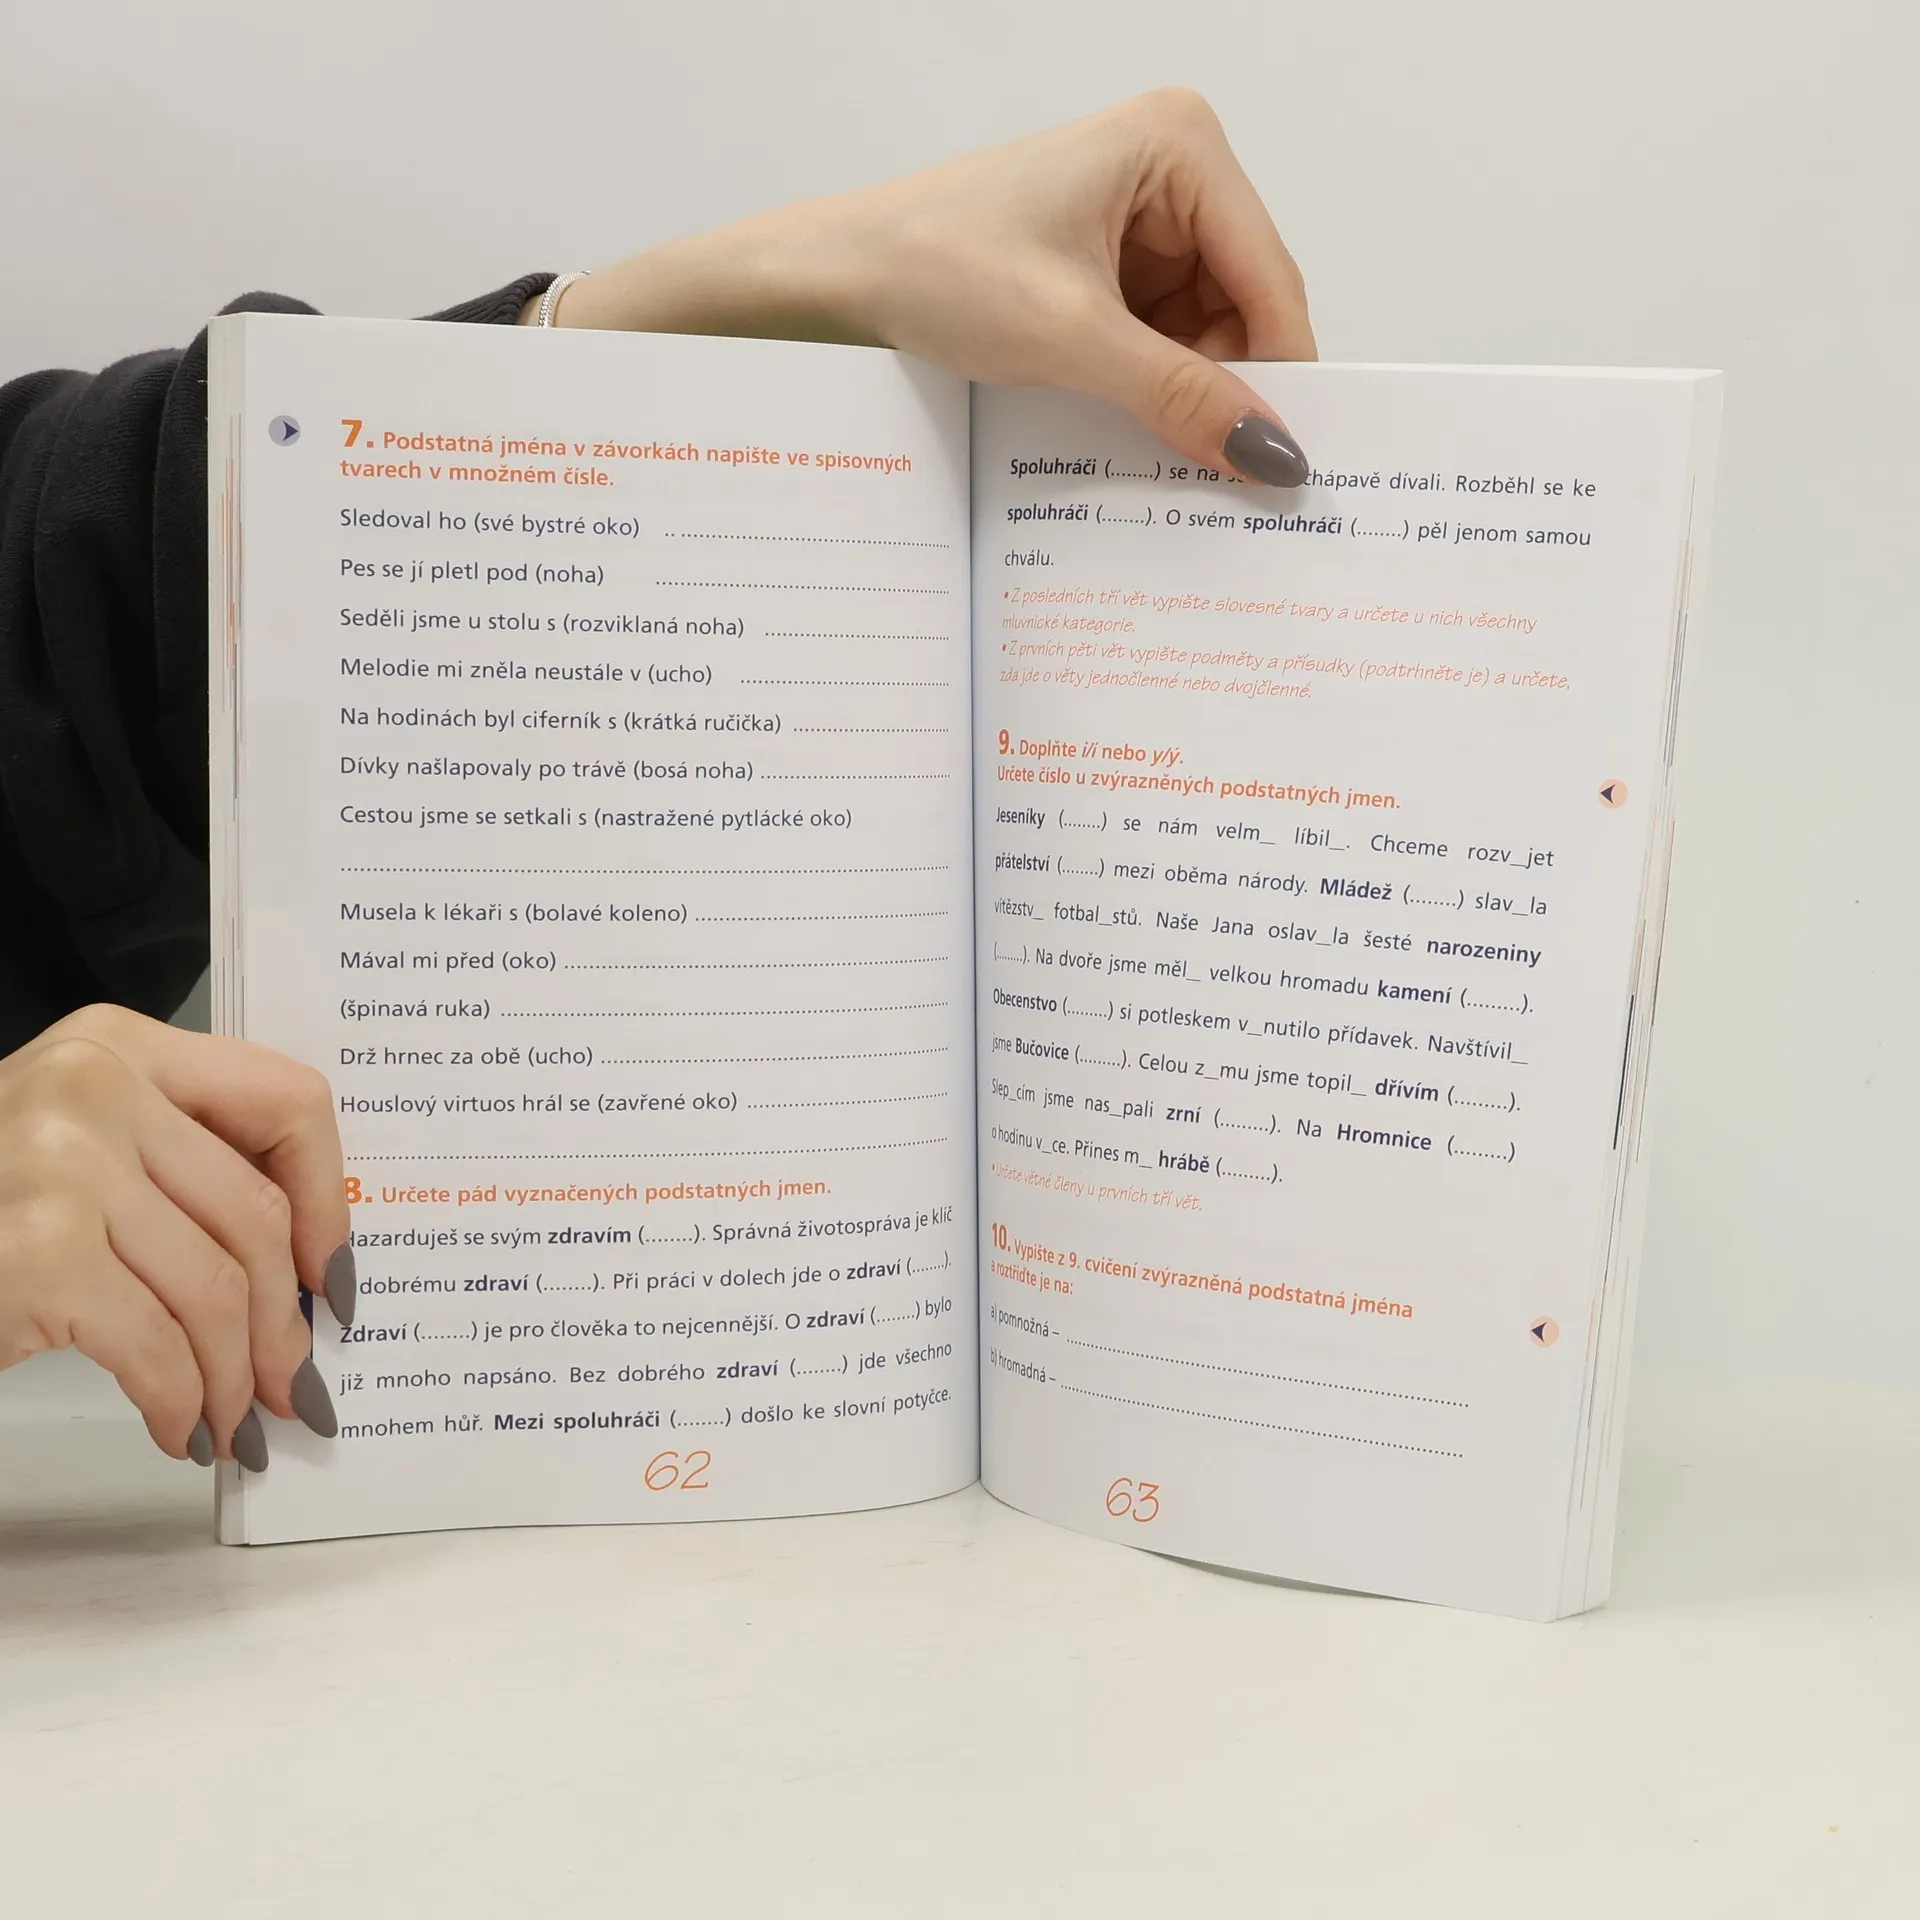 7. Podstatná jména v závorkách napište ve spisovných
tvarech v množném čísle.
Sledoval ho (své bystré oko) .. ........................................
Pes se jí pletl pod (noha) ........................................
Seděli jsme u stolu s (rozviklaná noha) ........................................
Melodie mi zněla neustále v (ucho) ........................................
Na hodinách byl ciferník s (krátká ručička) ........................................
Dívky našlapovaly po trávě (bosá noha) ........................................
Cestou jsme se setkali s (nastražené pytlácké oko)
........................................
Musela k lékaři s (bolavé koleno) ........................................
Mával mi před (oko) ........................................
(špinavá ruka) ........................................
Drž hrnec za obě (ucho) ........................................
Houslový virtuos hrál se (zavřené oko) ........................................
........................................
8. Určete pád vyznačených podstatných jmen.
Hazarduješ se svým zdravím (........). Správná životospráva je klíč
dobrému zdraví (........). Při práci v dolech jde o zdraví (........).
Zdraví (........) je pro člověka to nejcennější. O zdraví (........) bylo
již mnoho napsáno. Bez dobrého zdraví (........) jde všechno
mnohem hůř. Mezi spoluhráči (........) došlo ke slovní potyčce.
62
Spoluhráči (........) se na chápavě dívali. Rozběhl se ke
spoluhráči (........). O svém spoluhráči (........) pěl jenom samou
chválu.
• Z posledních tří vět vypište slovesné tvary a určete u nich všechny
mluvnické kategorie.
• Z prvních pěti vět vypište podměty a přísudky (podtrhněte je) a určete,
zda jde o věty jednočlenné nebo dvojčlenné.
9. Doplňte i/í nebo y/ý.
Určete číslo u zvýrazněných podstatných jmen.
Jeseníky (........) se nám velm_ líbil_. Chceme rozv_jet
přátelství (........) mezi oběma národy. Mládež (........) slav_la
vítězstv_ fotbal_stů. Naše Jana oslav_la šesté narozeniny
(.........). Na dvoře jsme měl_ velkou hromadu kamení (.........).
Obecenstvo (.........) si potleskem v_nutilo přídavek. Navštívil_
jsme Bučovice (.........). Celou z_mu jsme topil_ dřívím (.........).
Slep_cím jsme nas_pali zrní (.........). Na Hromnice (.........)
o hodinu v_ce. Přines m_ hrábě (.........).
• Určete větné členy u prvních tří vět.
10. Vypište z 9. cvičení zvýrazněná podstatná jména
a roztřiďte je na:
a) pomnožná – ........................................
b) hromadná – ........................................
63